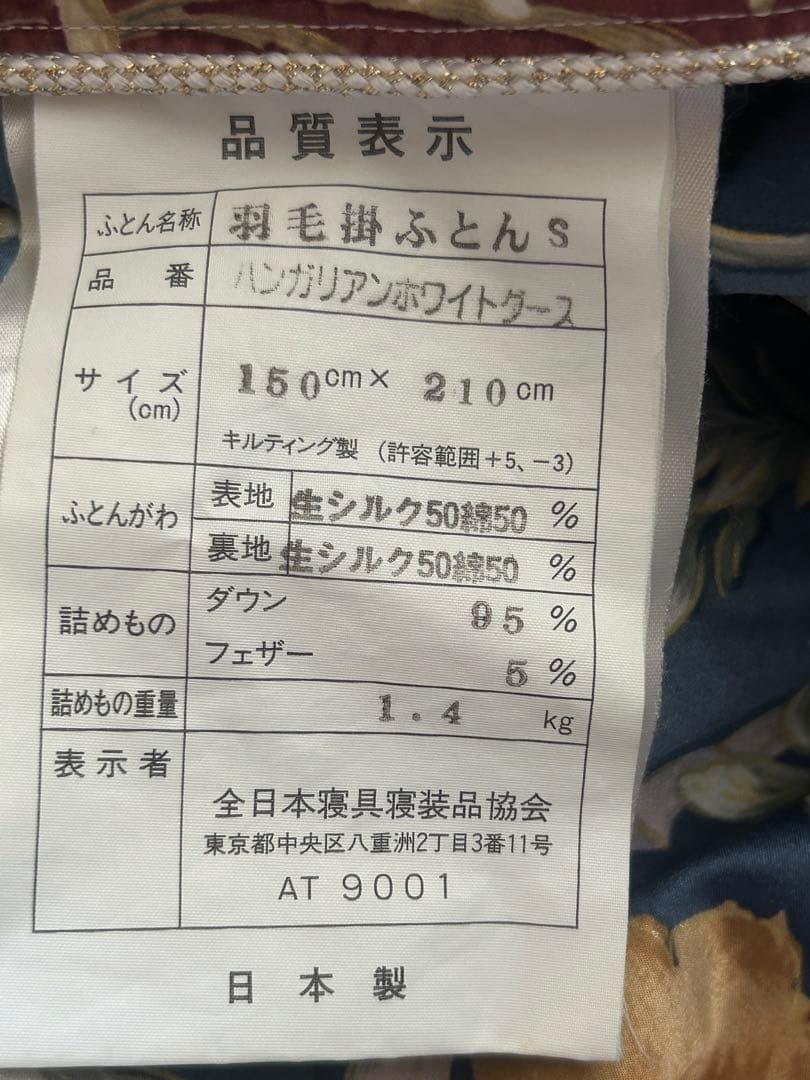 品質表示
ふとん名称 羽毛掛ふとん S
品番 ハンガリアンホワイトグース
サイズ(cm) 150cm× 210cm
キルティング製 (許容範囲+5、-3)
ふとんがわ 表地 生シルク50綿50 %
裏地 生シルク50綿50 %
詰めもの ダウン 95 %
フェザー 5 %
詰めもの重量 1.4 kg
表示者
全日本寝具寝装品協会
東京都中央区八重洲2丁目3番11号
AT 9001
日本製